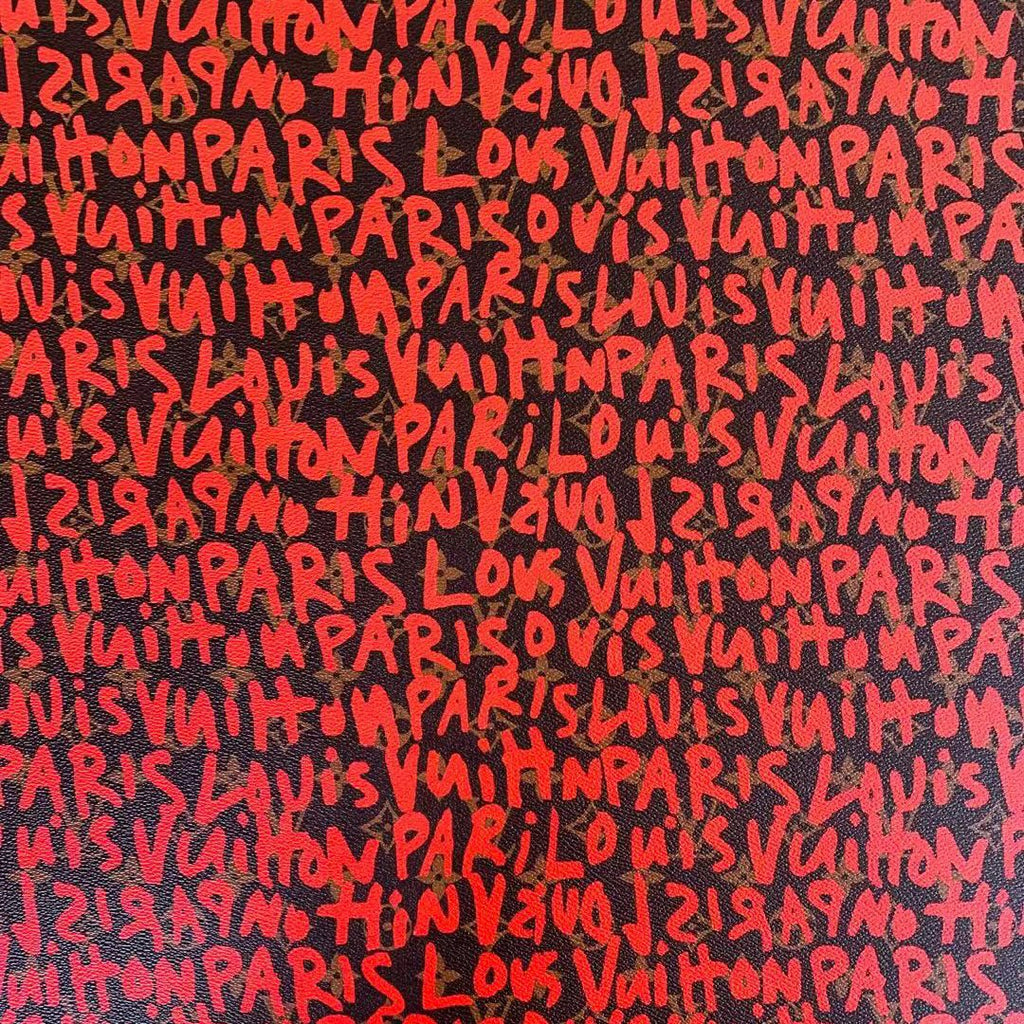 uis Vuitton PARi LOuis Vuitton
L SIRAP no ttiuV siuoL SIRAP no tt
uitton PARIS Louis Vuitton PARIS
s Vuitton PARIS ouis Vuitton PA
ouis Vuitton PARIS Louis Vuitton
PARIS Louis Vuitton PARIS Louis
uis Vuitton PARi LOuis Vuitton
L SIRAP no ttiuV siuoL SIRAP no tt
uitton PARIS Louis Vuitton PARIS
s Vuitton PARIS ouis Vuitton PA
ouis Vuitton PARIS Louis Vuitton
PARIS Louis Vuitton PARIS Louis
uis Vuitton PARi LOuis Vuitton
L SIRAP no ttiuV siuoL SIRAP no tt
uitton PARIS Louis Vuitton PARIS